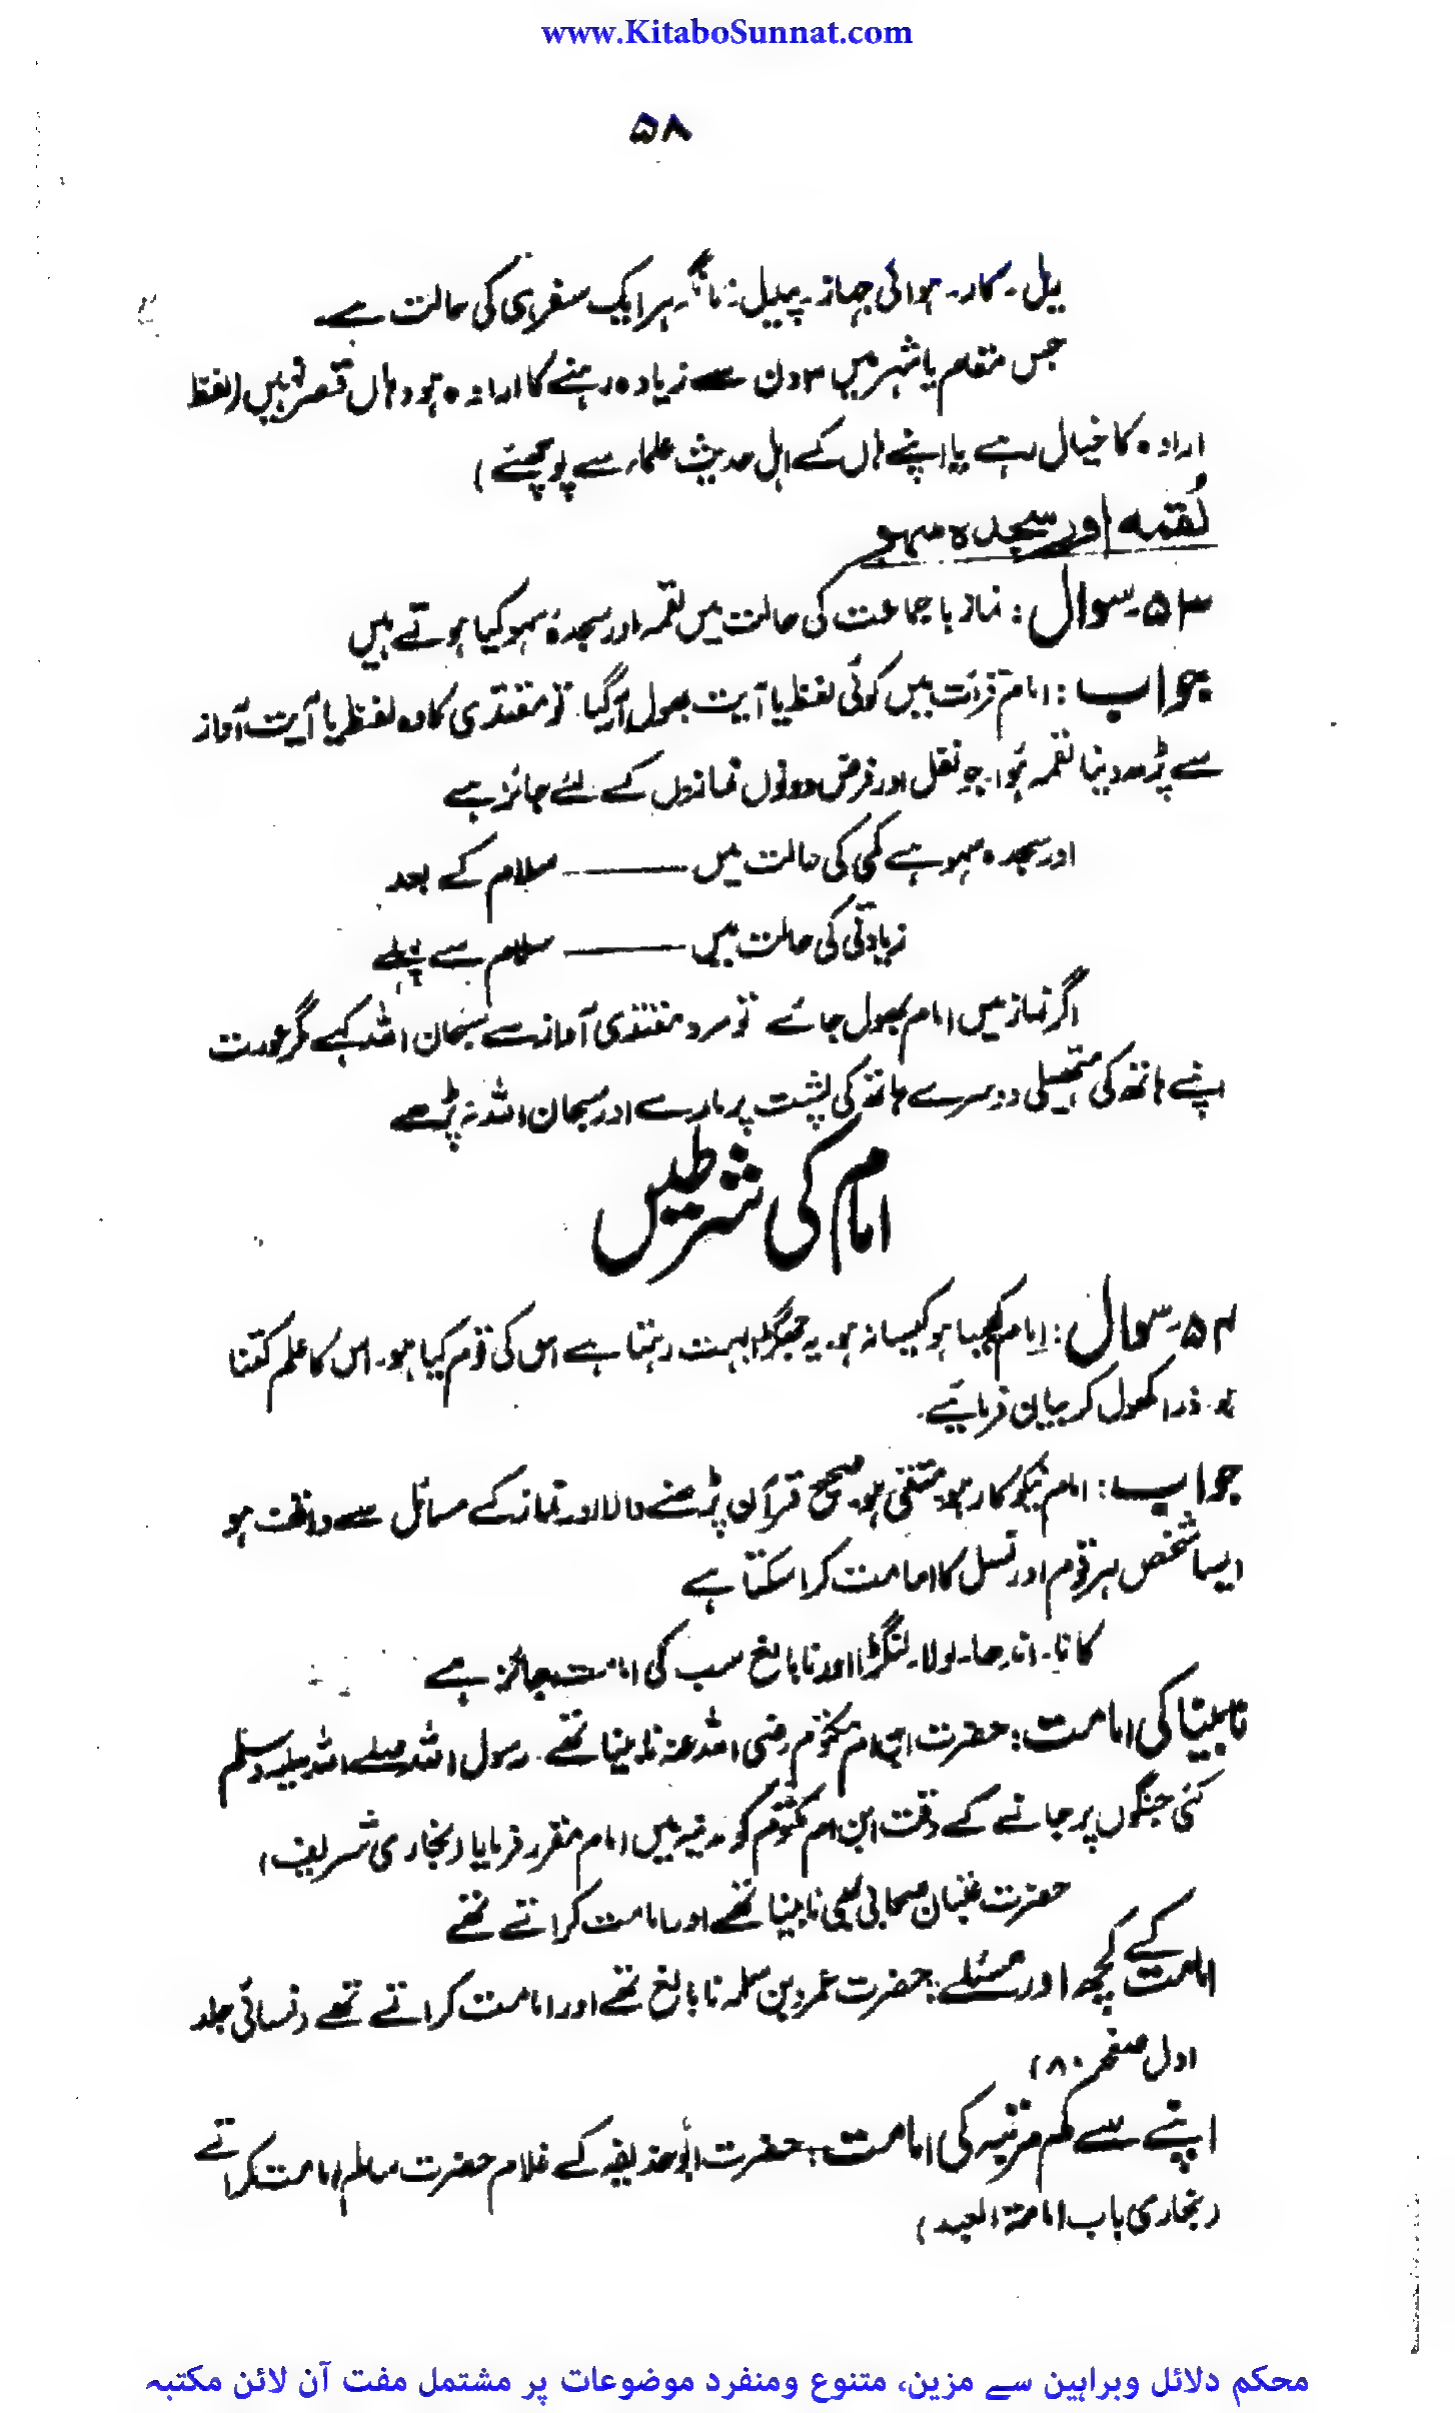 www.KitaboSunnat.com
۵۸
یل۔ کار۔ ہوائی جہاز۔ پیدل۔ ہر ایک سفر ہی کی حالت ہے۔
جس مقام یا شہر میں ۳ دن سے زیادہ رہنے کا ارادہ ہو وہاں قصر نہیں (لفظ
ارادہ کا خیال رہے یا اپنے ہاں کے اہل حدیث علماء سے پوچھئے)
لُقمہ اور سجدہ سہو
۵۳۔ سوال : نماز با جماعت کی حالت میں لقمہ اور سجدۂ سہو کیا ہوتے ہیں
جواب : امام قرأت میں کوئی لفظ یا آیت بھول گیا۔ تو مقتدی کا وہ لفظ یا آیت آواز
سے پڑھ دینا لقمہ ہوا۔ جو نفل اور فرض دونوں نمازوں کے لئے جائز ہے
اور سجدہ سہو ہے کمی کی حالت میں ——— سلام کے بعد
زیادتی کی حالت میں ——— سلام سے پہلے
اگر نماز میں امام بھول جائے تو مرد مقتدی آواز سے سبحان اللہ کہے مگر عورت
اپنے ہاتھ کی ہتھیلی دوسرے ہاتھ کی پشت پر مارے اور سبحان اللہ نہ پڑھے
امام کی شرطیں
۵۴۔ سوال : امام کیسا ہو کیسا نہ ہو۔ یہ جھگڑا بہت رہتا ہے اس کی قوم کیا ہو۔ اس کا علم کتنا
ہو۔ ذرا کھول کر بیان فرمائیے۔
جواب : امام نیکوکار ہو، متقی ہو۔ صحیح قرآن پڑھنے والا اور نماز کے مسائل سے واقف ہو
ایسا شخص ہر قوم اور نسل کا امامت کرا سکتا ہے
کانا۔ اندھا۔ لولا۔ لنگڑا اور نابالغ سب کی امامت جائز ہے
نابینا کی امامت : حضرت ابن ام مکتوم رضی اللہ عنہ نابینا تھے۔ رسول اللہ صلے اللہ علیہ وسلم
کئی جنگوں پر جانے کے وقت ابن ام مکتوم کو مدینہ میں امام مقرر فرمایا (بخاری شریف)
حضرت عتبان صحابی بھی نابینا تھے اور امامت کراتے تھے
امامت کے کچھ اور مسئلے : حضرت عمرو بن سلمہ نابالغ تھے اور امامت کراتے تھے (نسائی جلد
اول صفحہ ۸۰)
اپنے سے کم مرتبہ کی امامت : حضرت ابو حذیفہ کے غلام حضرت سالم امامت کراتے
(بخاری باب امامۃ العبد)
محکم دلائل وبراہین سے مزین، متنوع ومنفرد موضوعات پر مشتمل مفت آن لائن مکتبہ